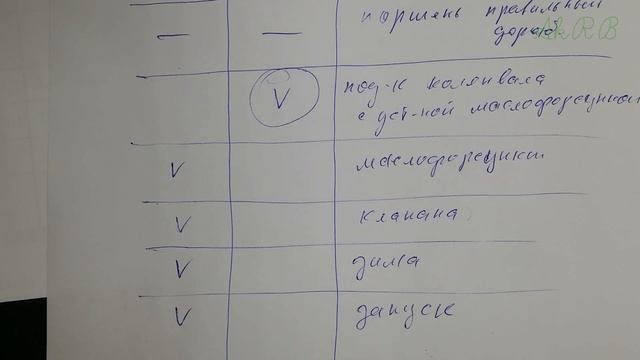 — — поршень правильный
дораб AkRB
V под-к коленвала
с уст-ной маслофорсункой
V маслофорсунки
V клапана
V зима
V запуск